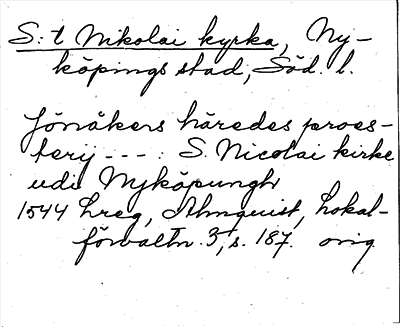 S:t Nikolai kyrka, Ny-
köpings stad, Söd. l.
Jönåkers häredes proes-
terij ---: S. Nicolai kirke
udi Nyköpungh
1544 Lreg, Almquist, Lokal-
förvaltn. 3, s. 187. orig.